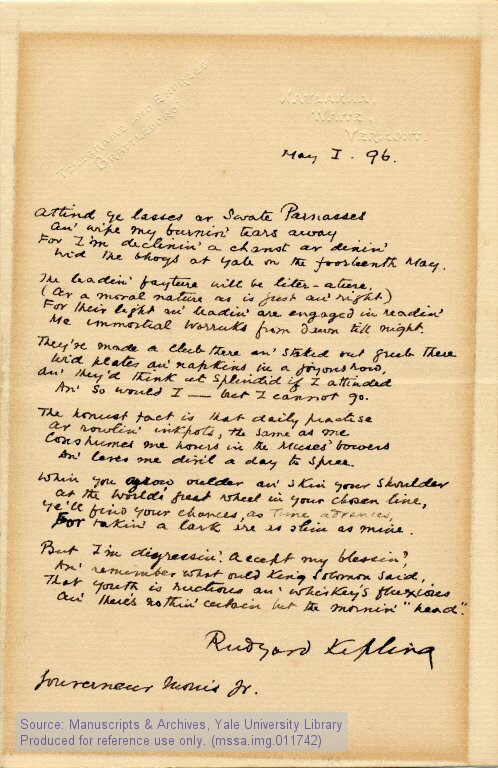 TELEGRAMS AND EXPRESS
BRATTLEBORO.
NAULAKHA,
WAITE,
VERMONT.
May I. 96.
Attend ye lasses av Swate Parnasses
An' wipe my burnin' tears away
For I'm declinin' a chanst av dinin'
Wid the bhoys at Yale on the foorteenth May.
The leadin' fayture will be liter-ature,
(Av a moral nature as is just an' right)
For their light an' leadin' are engaged in readin'
Me immortial Worruks from dawn till night.
They've made a club there an' staked out grub there
Wid plates an' napkins in a joyous row,
An' they'd think ut splendid if I attinded
An' so would I — but I cannot go.
The honust fact is that daily practise
Av rowlin' inkpots, the same as me
Conshumes me hours in the Muses' bowers
An' laves me divil a day to spree.
Whin you grow oulder an' skin your shoulder
At the World's great wheel in your chosen line,
Ye'll find your chances, as time advances,
For takin' a lark are as slim as mine.
But I'm digressin'. Accept my blessin',
An' remember what ould King Solomon said,
That youth is ructious an' whiskey's fluxious
An' there's nothin' certain but the mornin' "head".
Rudyard Kipling
Gouverneur Morris Jr.
Source: Manuscripts & Archives, Yale University Library
Produced for reference use only. (mssa.img.011742)